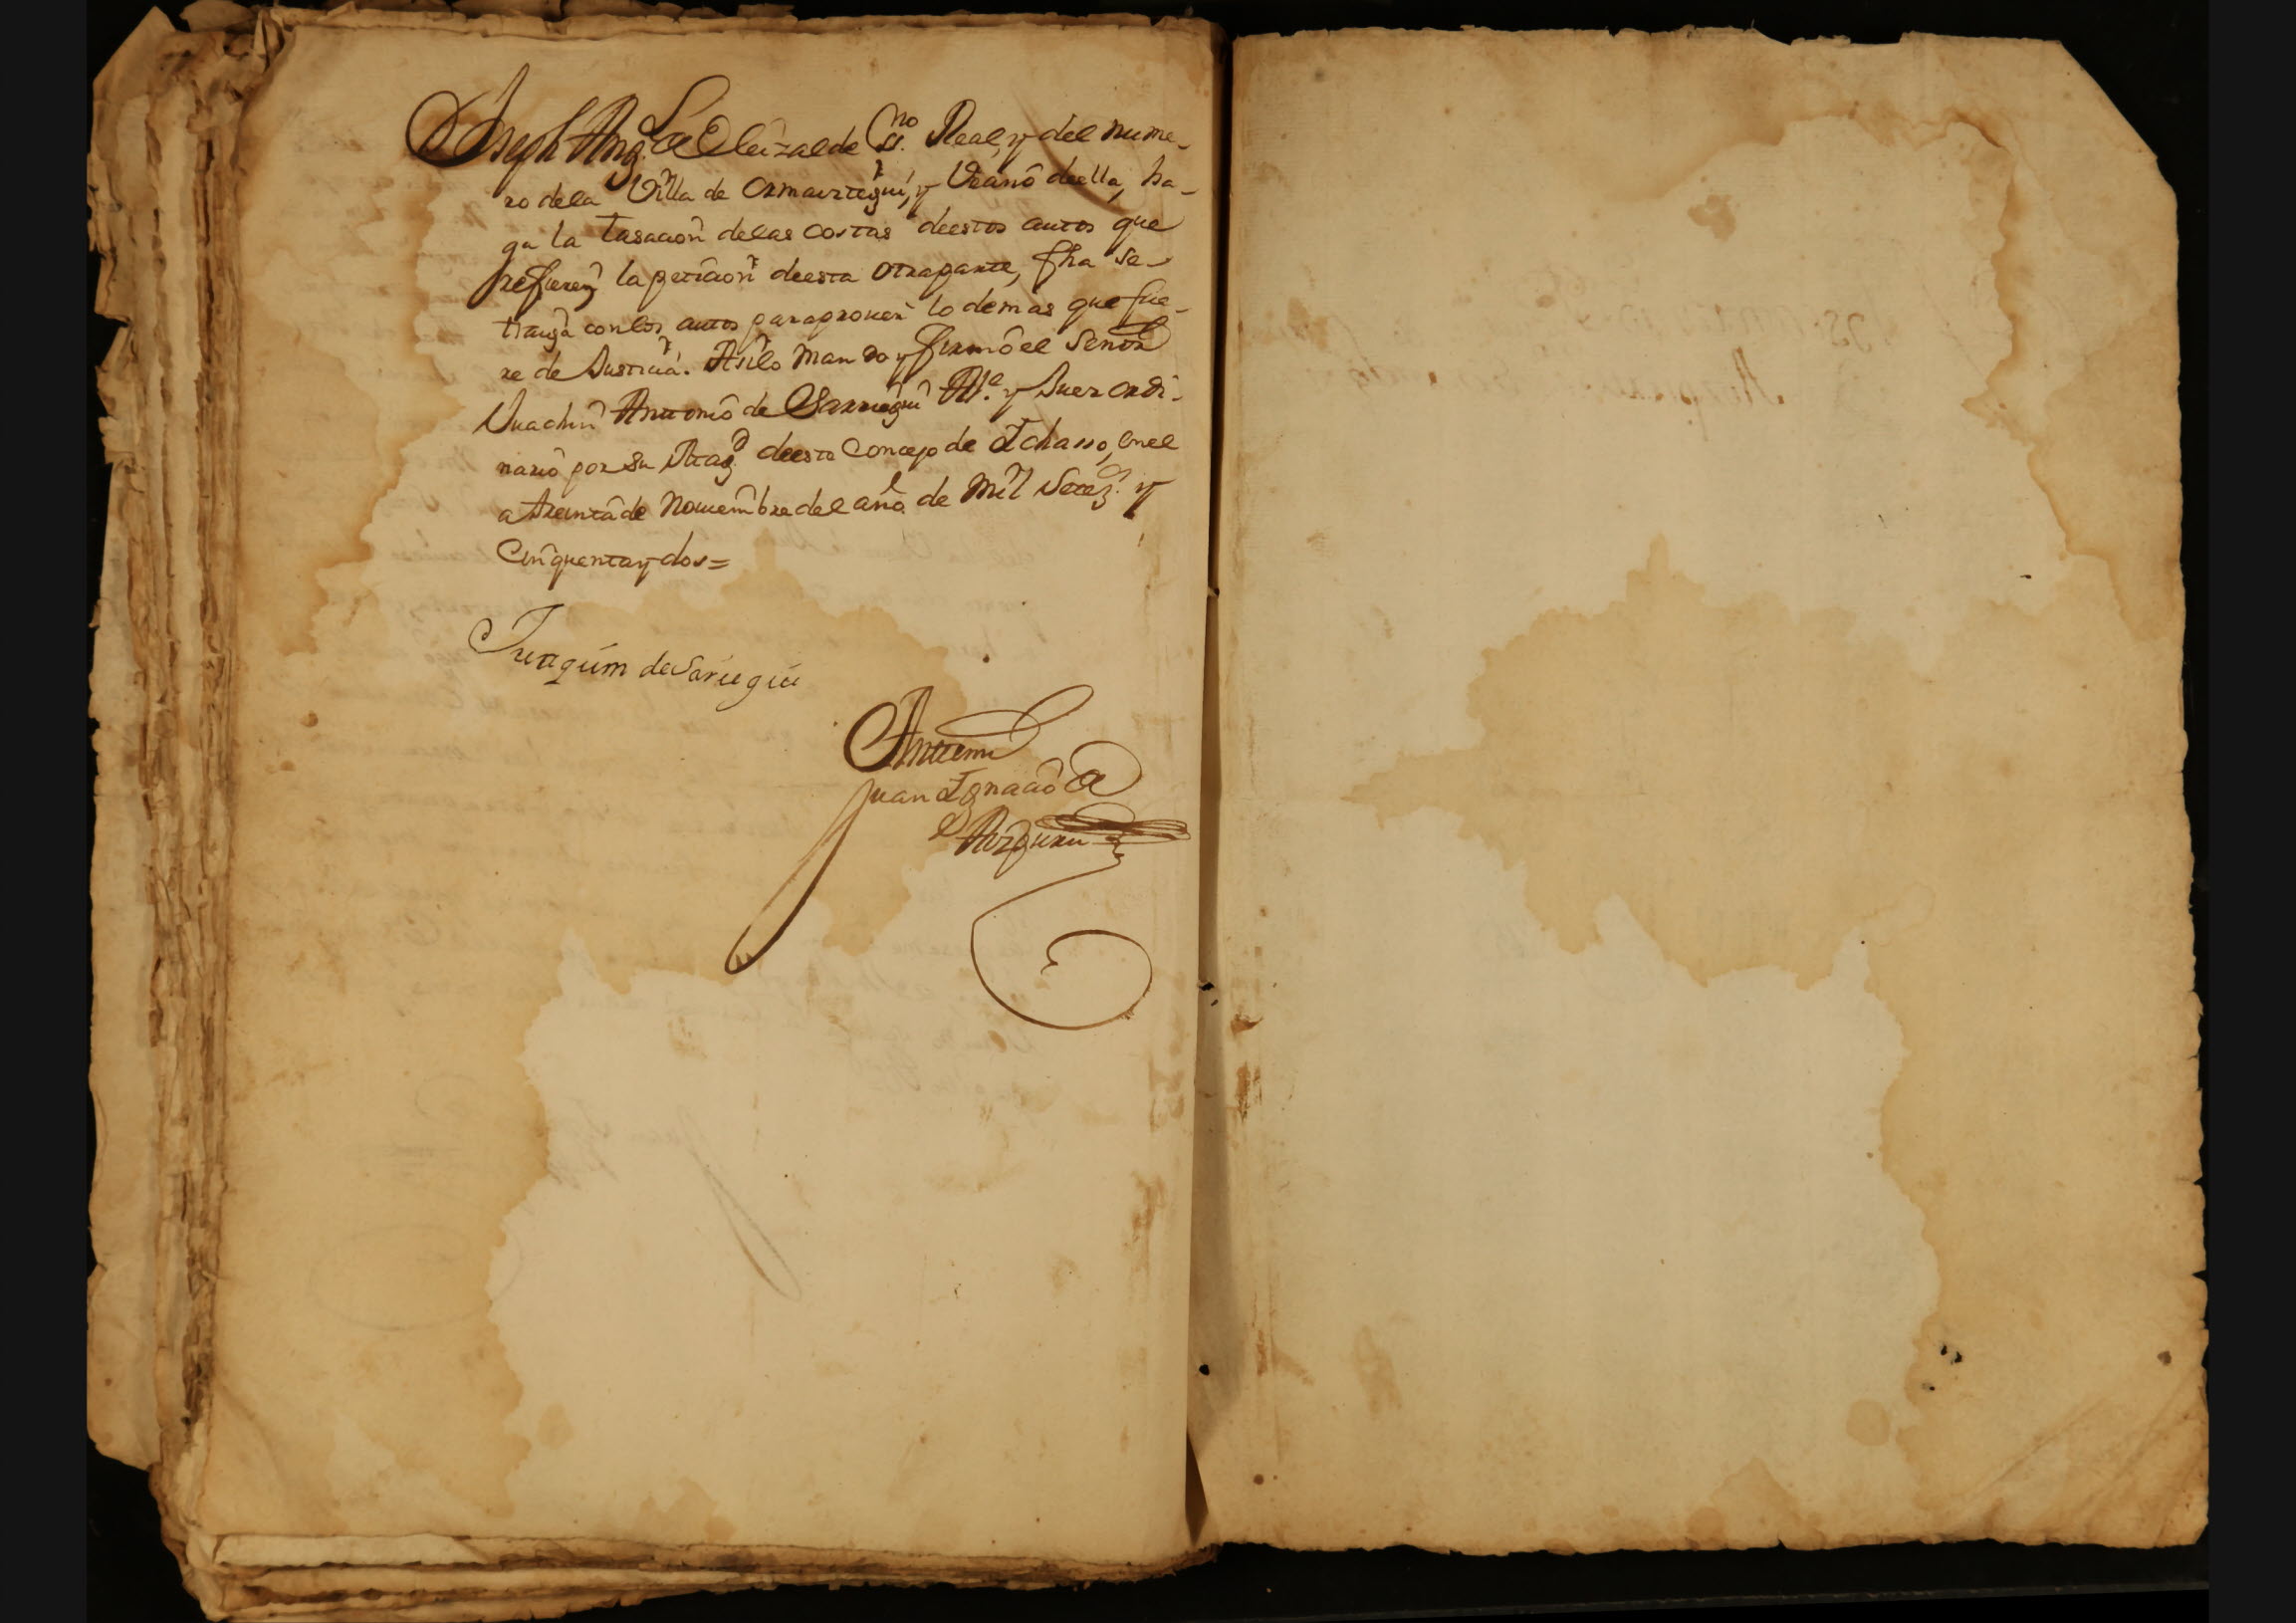 Joseph Ang.l de Eleizalde ss.no Real, y del nume-
ro dela Villa de Ormaiztegui, y Vecinô deella, ha-
ga la tasacion delas costas deestos autos que
refieren la peticion deesta otraparte, fha se
traiga conlos autos paraproueer lo demas que fue-
re de Justicia. Asilo mandò y firmò el Señor
Juachin Antonio de Sarriegui Al.e y Juez ordi-
nario por su Mag.d deeste Concejo de Ichasso, enel
a treinta de Nouiembre del año de Mil Setez.s y
Cinquentay dos=
Juaquim de Sariegui
Antemi
Juan Ignacio de
Aizpuru